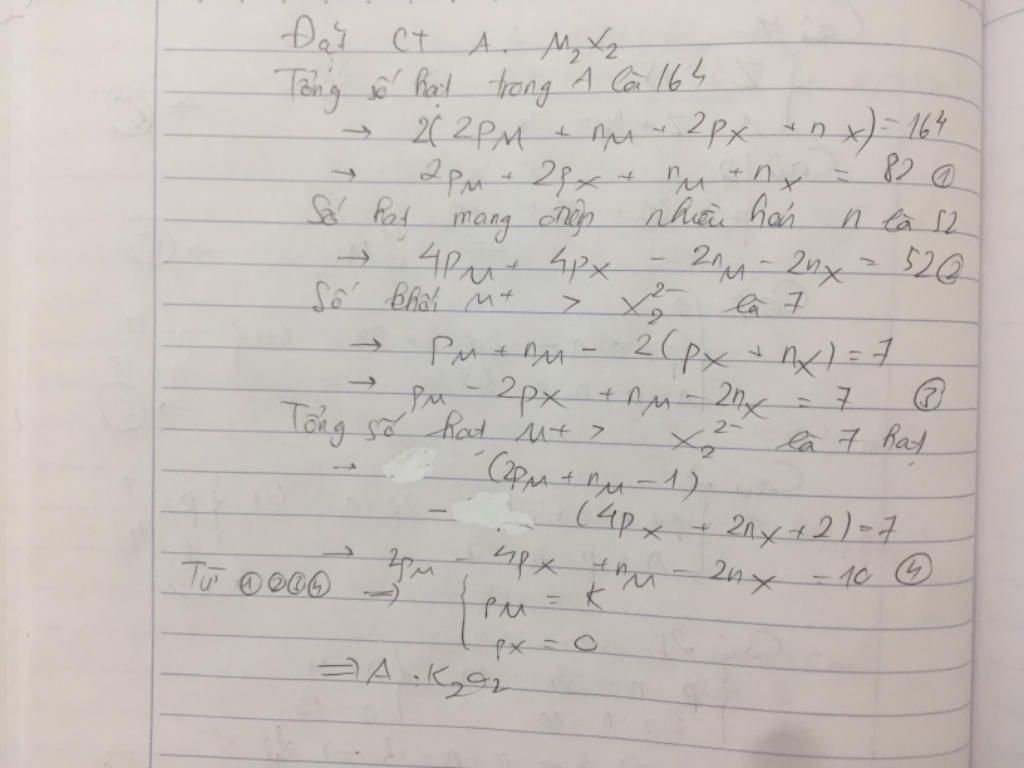 Đặt CT A: M₂X₂
Tổng số hạt trong A là 164
→ 2(2pM + nM + 2pX + nX) = 164
→ 2pM + 2pX + nM + nX = 82 ①
Số hạt mang điện nhiều hơn n là 52
→ 4pM + 4pX - 2nM - 2nX = 52 ②
Số khối M+ > X₂²⁻ là 7
→ pM + nM - 2(pX + nX) = 7
→ pM - 2pX + nM - 2nX = 7 ③
Tổng số hạt M+ > X₂²⁻ là 7 hạt
→ (2pM + nM - 1)
- (4pX + 2nX + 2) = 7
→ 2pM - 4pX + nM - 2nX = 10 ④
Từ ①②③④ => { pM = K
pX = O
=> A: K₂O₂